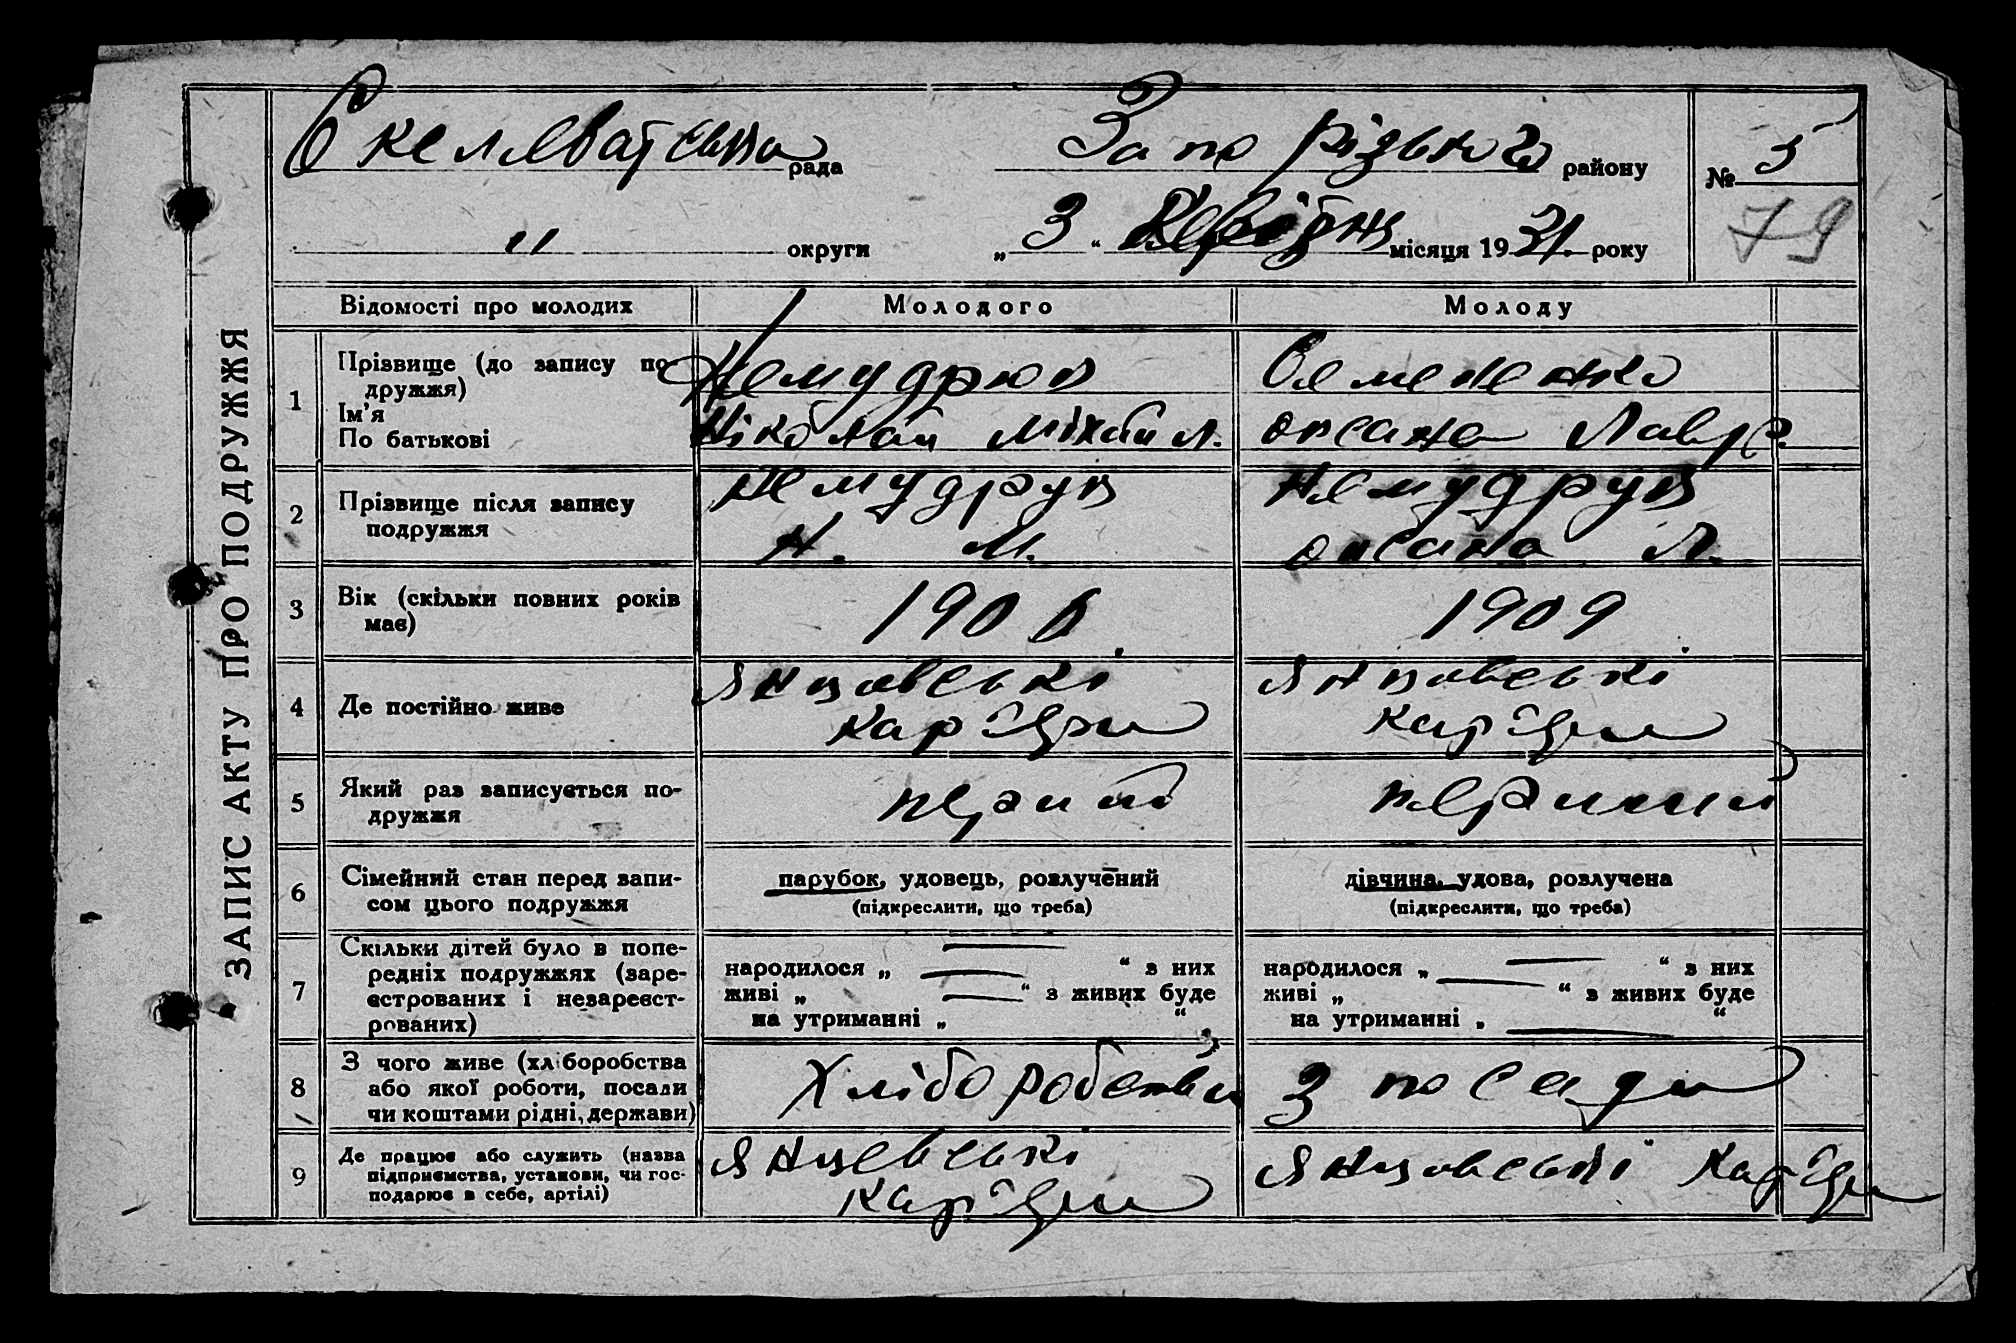 ЗАПИС АКТУ ПРО ПОДРУЖЖЯ
Скелеватська рада Запорізького району № 5
" округи „3“ місяця 1931. року 79
Відомості про молодих Молодого Молоду
1 Прізвище (до запису подружжя) Немудрюк Семененко
Ім'я
По батькові Ніколай Міхайл. Оксана Лавр.
2 Прізвище після запису Немудрук Немудрук
подружжя Н. М. Оксана Л.
3 Вік (скільки повних років 1906. 1909.
має)
4 Де постійно живе Янцовські Янцовські
Кар'єри Кар'єри
5 Який раз записується по- перший
дружжя
6 Сімейний стан перед запи- парубок, удовець, розлучений дівчина, удова, розлучена
сом цього подружжя (підкреслити, що треба) (підкреслити, що треба)
7 Скільки дітей було в попе-
редніх подружжях (заре- народилося „ — “ з них народилося „ — “ з них
єстрованих і незареєст- живі „ — “ з живих буде живі „ — “ з живих буде
рованих) на утриманні „ “ на утриманні „ — “
8 З чого живе (хліборобства Хліборобства З посади
або якої роботи, посади
чи коштами рідні, держави)
9 Де працює або служить (назва Янцевські Янцовські Кар'єри
підприємства, установи, чи гос- Кар'єри
подарює в себе, артілі)